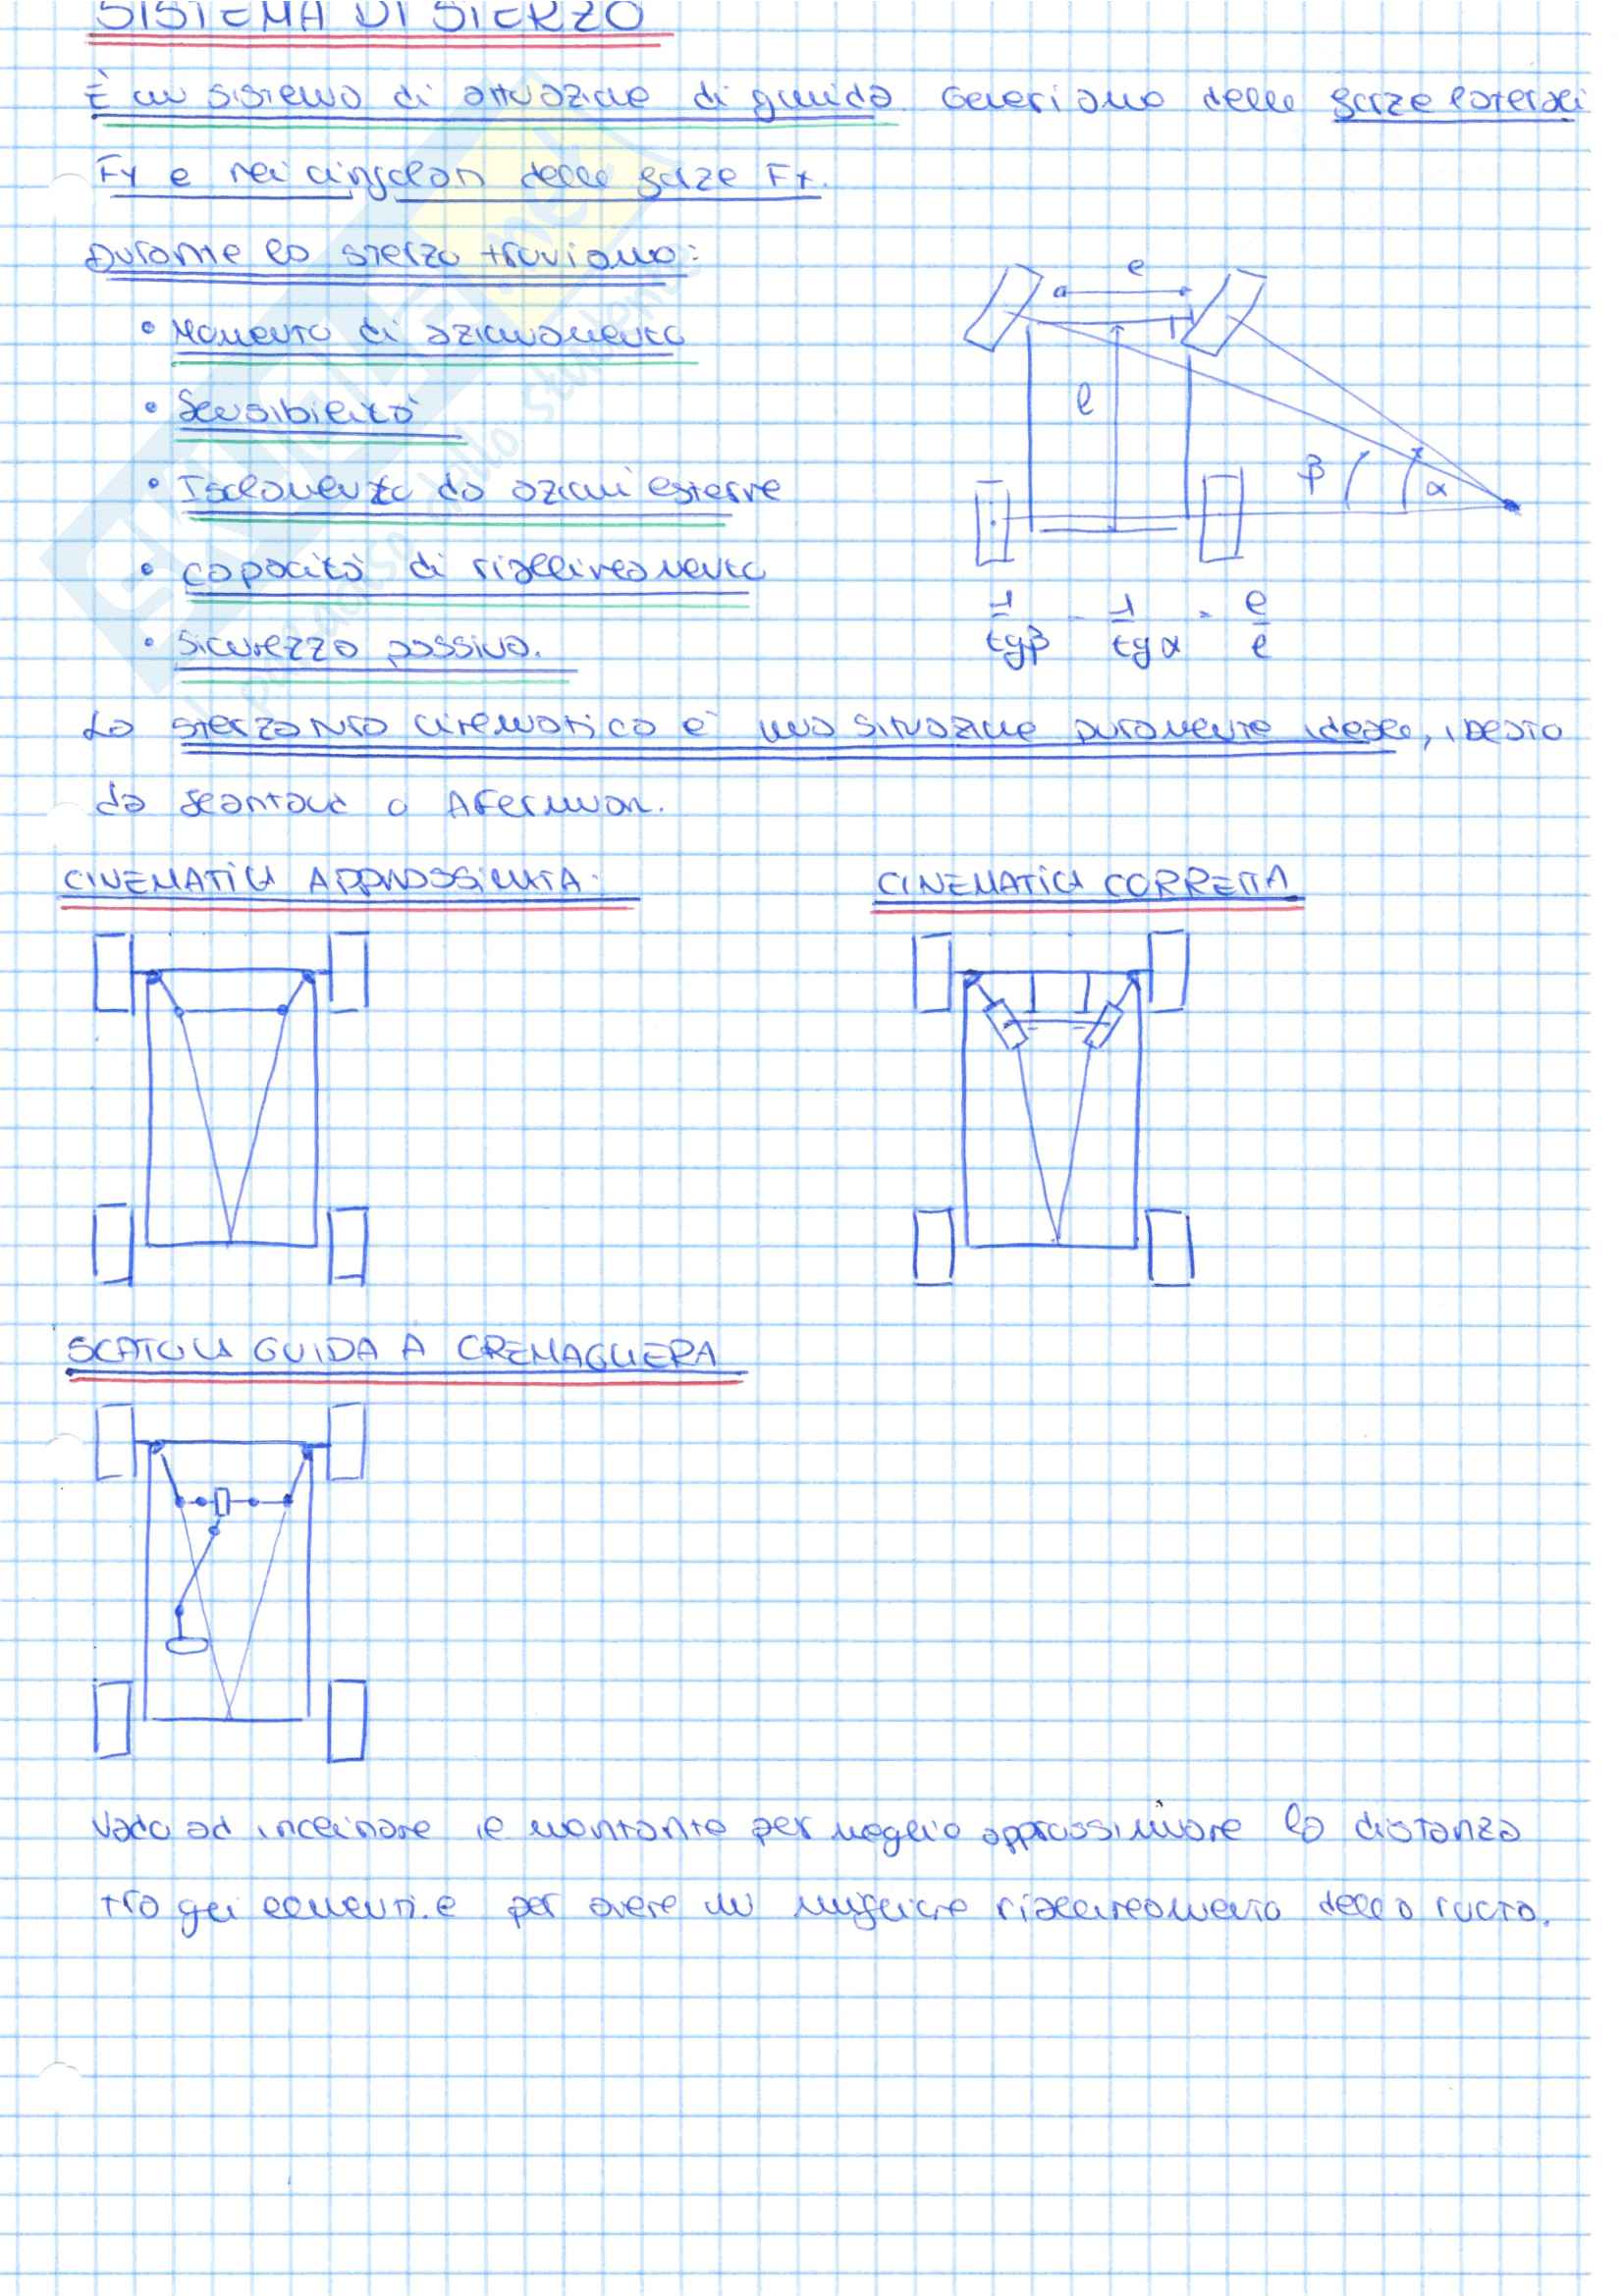 SISTEMA DI STERZO
È un sistema di attuazione di guida. Generiamo delle forze laterali
Fy e nei cingolati delle forze Fx.
Durante lo sterzo troviamo:
• Momento di azionamento
• Sensibilità
• Isolamento da azioni esterne
• capacità di riallineamento
• Sicurezza passiva.
e
l
β
α
1/tgβ - 1/tgα = e/l
Lo sterzanto cinematico è una situazione puramente ideale,
da o
CINEMATICA APPROSSIMATA:
CINEMATICA CORRETTA
SCATOLA GUIDA A CREMAGLIERA
Vado ad inclinare il montante per meglio approssimare la distanza
tra gli elementi e per avere un migliore riallineamento della ruota.
SKUOLA.net